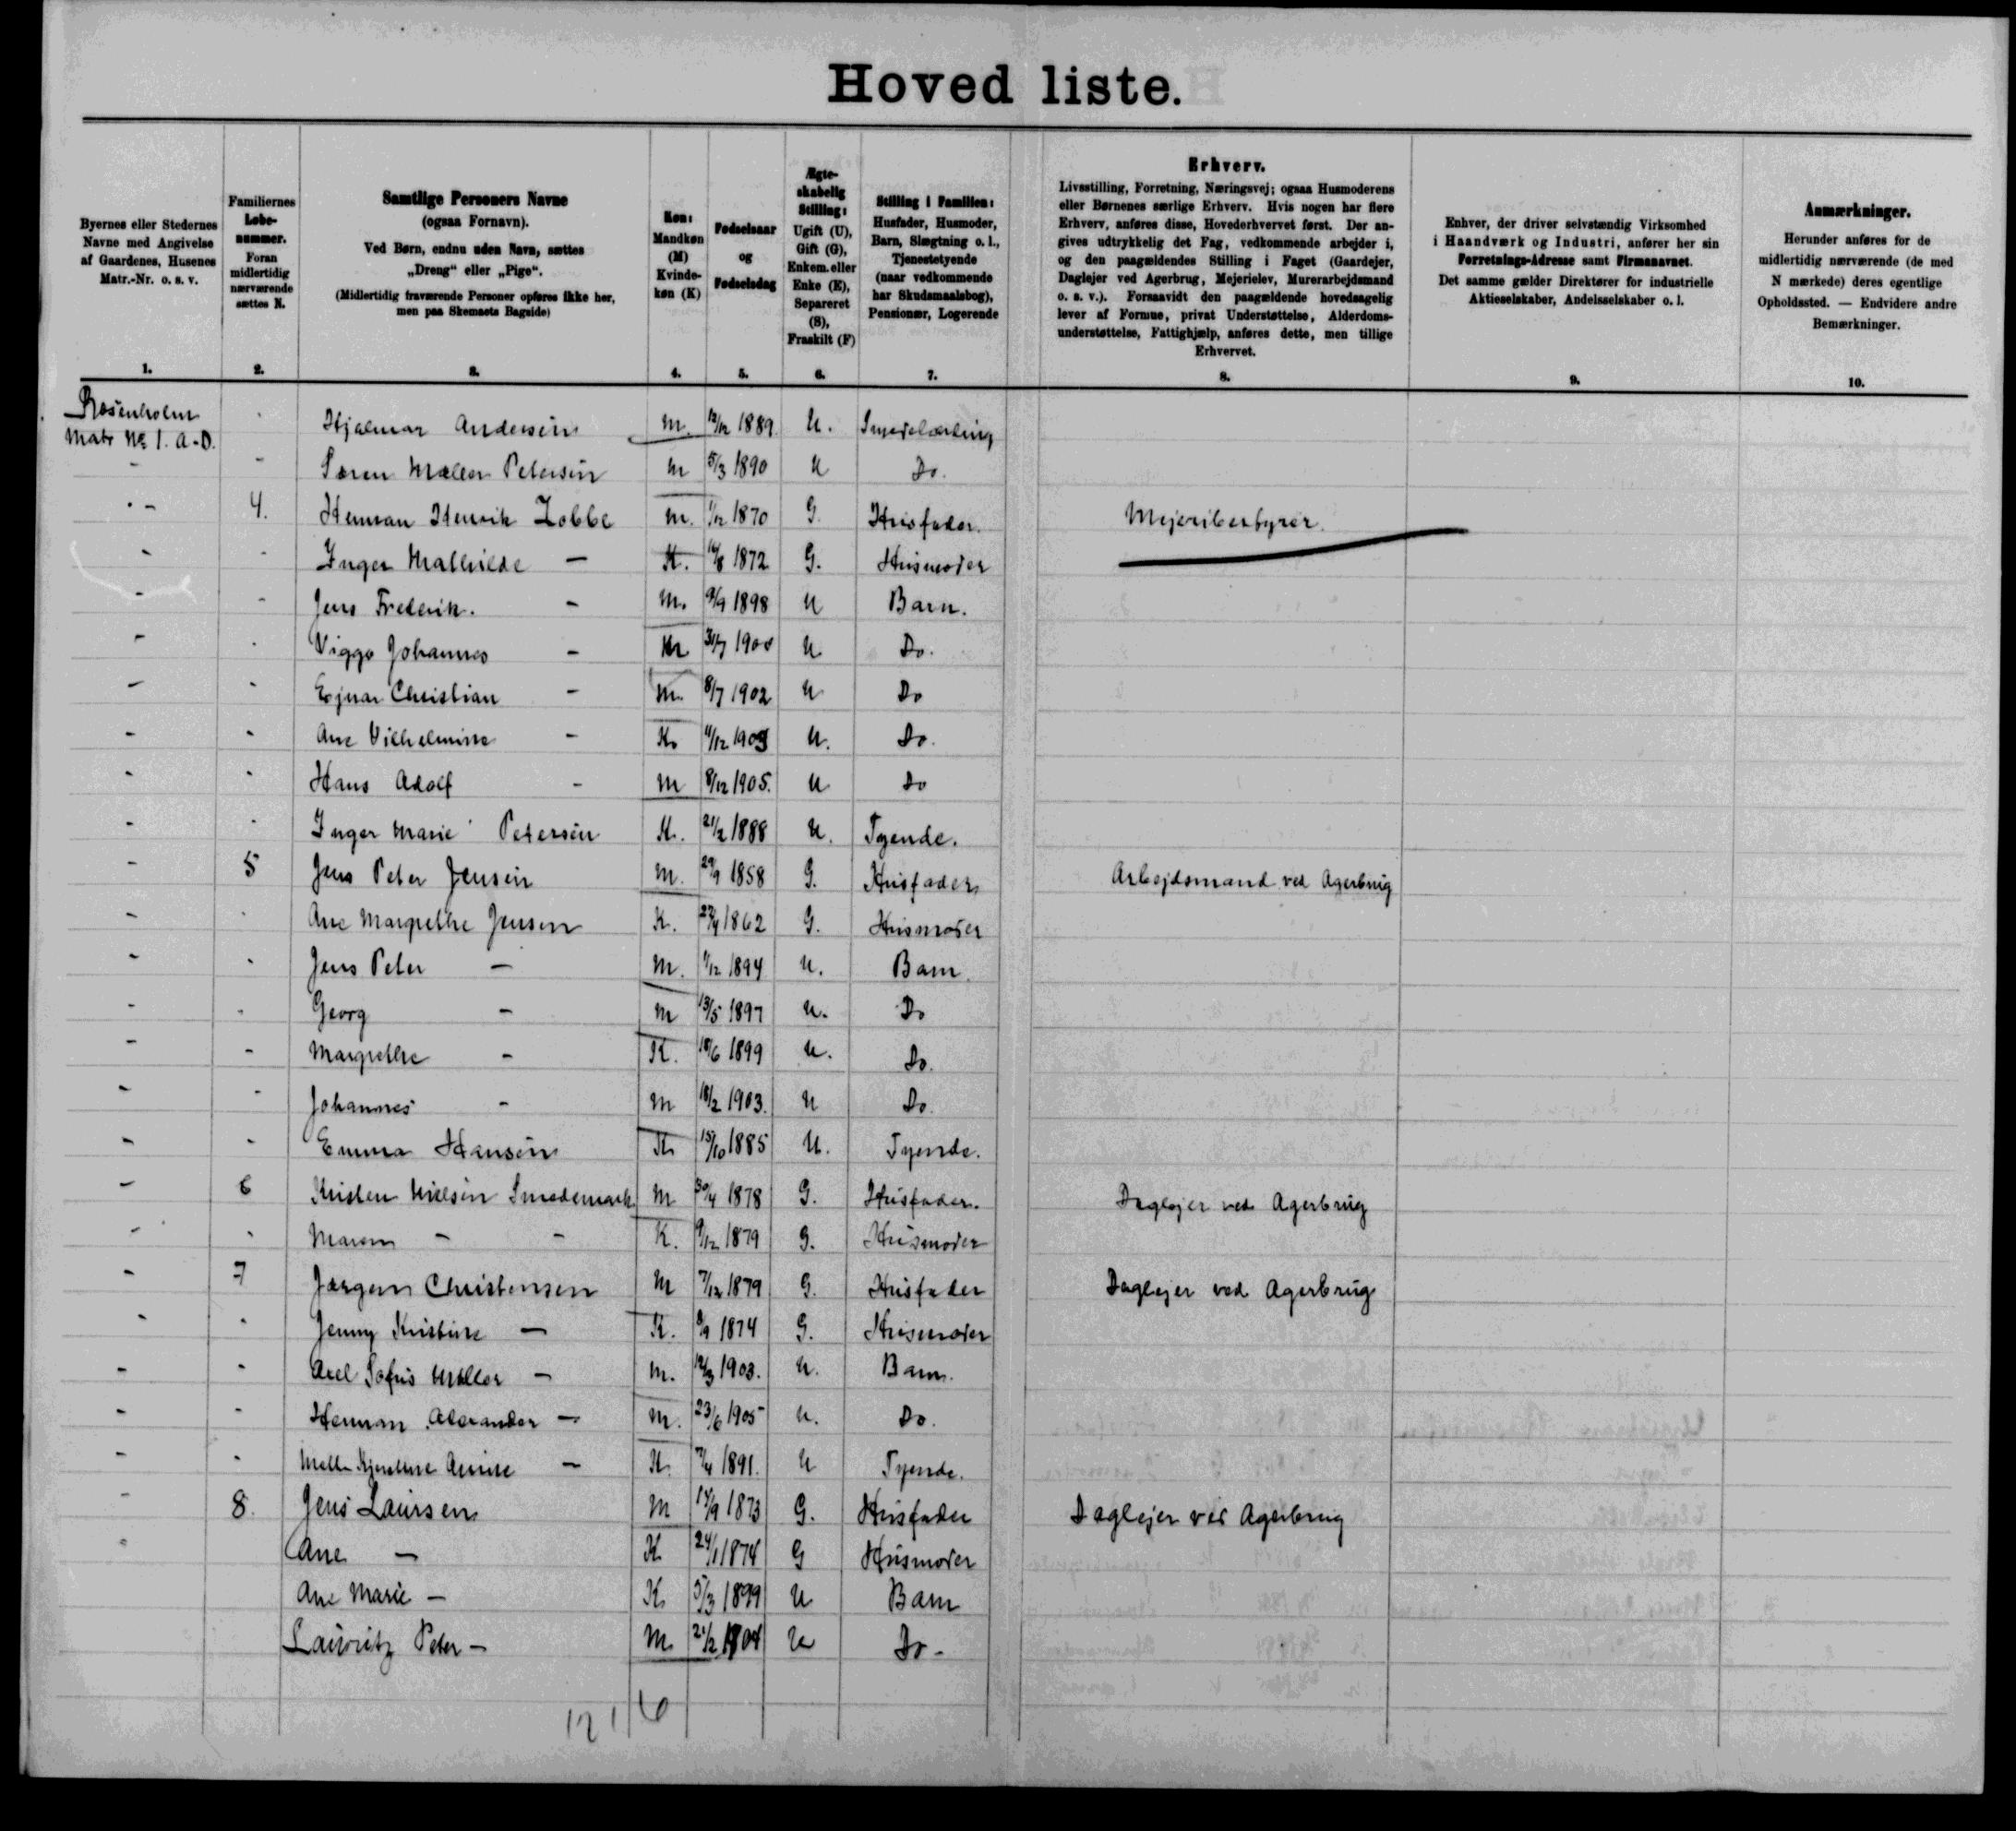 Hoved liste.
Byernes eller Stedernes Navne med Angivelse af Gaardenes, Husenes Matr.-Nr. o. s. v.
Familiernes Løbe-nummer. Foran midlertidig nærværende sættes N.
Samtlige Personers Navne (ogsaa Fornavn). Ved Børn, endnu uden Navn, sættes „Dreng“ eller „Pige“. (Midlertidig fraværende Personer opføres ikke her, men paa Skemaets Bagside)
Køn: Mandkøn (M) Kvinde-køn (K)
Fødselsaar og Fødselsdag
Ægte-skabelig Stilling: Ugift (U), Gift (G), Enkem. eller Enke (E), Separeret (S), Fraskilt (F)
Stilling i Familien: Husfader, Husmoder, Barn, Slægtning o. l., Tjenestetyende (naar vedkommende har Skudsmaalsbog), Pensionær, Logerende
Erhverv. Livsstilling, Forretning, Næringsvej; ogsaa Husmoderens eller Børnenes særlige Erhverv. Hvis nogen har flere Erhverv, anføres disse, Hovederhvervet først. Der an-gives udtrykkelig det Fag, vedkommende arbejder i, og den paagældendes Stilling i Faget (Gaardejer, Daglejer ved Agerbrug, Mejerielev, Murerarbejdsmand o. s. v.). Forsaavidt den paagældende hovedsagelig lever af Formue, privat Understøttelse, Alderdoms-understøttelse, Fattighjælp, anføres dette, men tillige Erhvervet.
Enhver, der driver selvstændig Virksomhed i Haandværk og Industri, anfører her sin Forretnings-Adresse samt Firmanavnet. Det samme gælder Direktører for industrielle Aktieselskaber, Andelsselskaber o. l.
Anmærkninger. Herunder anføres for de midlertidig nærværende (de med N mærkede) deres egentlige Opholdssted. — Endvidere andre Bemærkninger.
1. 2. 3. 4. 5. 6. 7. 8. 9. 10.
Rosenholm
Matr No 1. a-D. Hjalmar Andersen M. 12/12 1889. U. Smedelærling
- - Søren Møller Petersen M 5/3 1890 U Do.
- 4. Herman Henrik Zobbe M. 1/12 1870 G. Husfader. Mejeribestyrer.
- - Inger Mathilde - K. 14/8 1872 G. Husmoder
- - Jens Frederik. - M. 9/9 1898 U Barn.
- - Viggo Johannes - M 31/7 1900 U Do.
- - Ejnar Christian - M. 8/7 1902 U Do
- - Ane Vilhelmine - K. 11/12 1903 U. Do.
- - Hans Adolf - M 8/12 1905. U Do
- - Inger Marie Petersen K. 21/2 1888 U. Tyende.
- 5 Jens Peter Jensen M. 29/9 1858 G. Husfader Arbejdsmand ved Agerbrug
- - Ane Margrethe Jensen K. 27/4 1862 G. Husmoder
- - Jens Peter - M. 1/12 1894 U. Barn.
- - Georg - M 13/5 1897 U. Do
- - Margrethe - K. 18/6 1899 U. Do.
- - Johannes - M 18/2 1903. U Do.
- - Emma Hansen K 15/10 1885 U. Tyende.
- 6 Kristen Nielsen Smedemark M 30/4 1878 G. Husfader. Daglejer ved Agerbrug
- - Maren - - K. 9/12 1879 G. Husmoder
- 7 Jørgen Christensen M 7/12 1879 G. Husfader Daglejer ved Agerbrug
- - Jenny Kristine - K. 8/9 1874 G. Husmoder
- - Axel Sofus Møller - M. 12/3 1903. U. Barn.
- - Herman Alexander - M. 23/6 1905 U. Do.
- - Kjerstine - K. 7/4 1891. U Tyende.
- 8. Jens Laursen M 14/9 1873 G. Husfader Daglejer ved Agerbrug
- Ane - K 24/1 1874 G Husmoder
Ane Marie - K 5/3 1899 U Barn
Lauritz Peter - M. 21/2 1904 U Do -
12 16